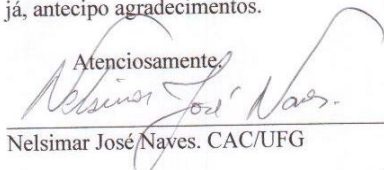 já, antecipo agradecimentos.
Atenciosamente,
Nelsimar José Naves.
Nelsimar José Naves. CAC/UFG